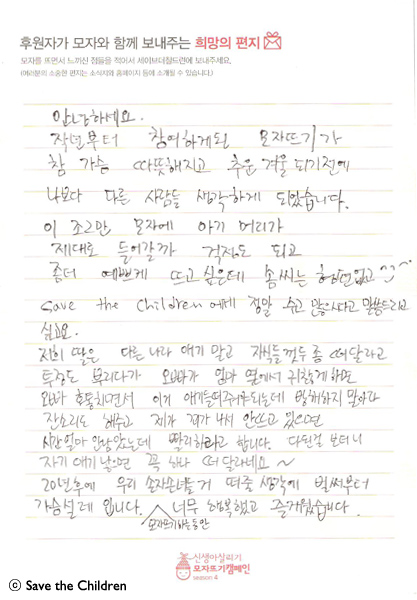 후원자가 모자와 함께 보내주는 희망의 편지
모자를 뜨면서 느끼신 점들을 적어서 세이브더칠드런에 보내주세요.
(여러분의 소중한 편지는 소식지와 홈페이지 등에 소개될 수 있습니다.)
안녕하세요.
작년부터 참여하게된 모자뜨기가
참 가슴 따뜻해지고 추운 겨울 되기전에
나보다 다른 사람들 생각하게 되었습니다.
이 조그만 모자에 아기 머리가
제대로 들어갈까 걱정도 되고
좀더 예쁘게 뜨고 싶은데 솜씨는 형편없고^^
save the children에게 정말 수고 많으시다고 말씀드리고
싶고요.
저희 딸은 다른나라 애기 말고 자식들껏두 좀 떠달라고
투정도 부리다가 오빠가 엄마 옆에서 귀찮게하면
오빠 호통치면서 이거 애기들떠주어야되는데 방해하지 말아라
잔소리도 해주고 제가 꾀가나서 안쓰고 있으면
시간얼마 안남았는데 빨리하라고 합니다. 다된걸 보더니
자기 애기 낳으면 꼭 하나 떠 달라네요~
20년후에 우리 손자손녀들거 떠줄 생각에 벌써부터
가슴설레 입니다. 모자뜨기하는동안 너무 행복했고 즐거웠습니다.
신생아살리기
모자뜨기캠페인
season 4
ⓒ Save the Children